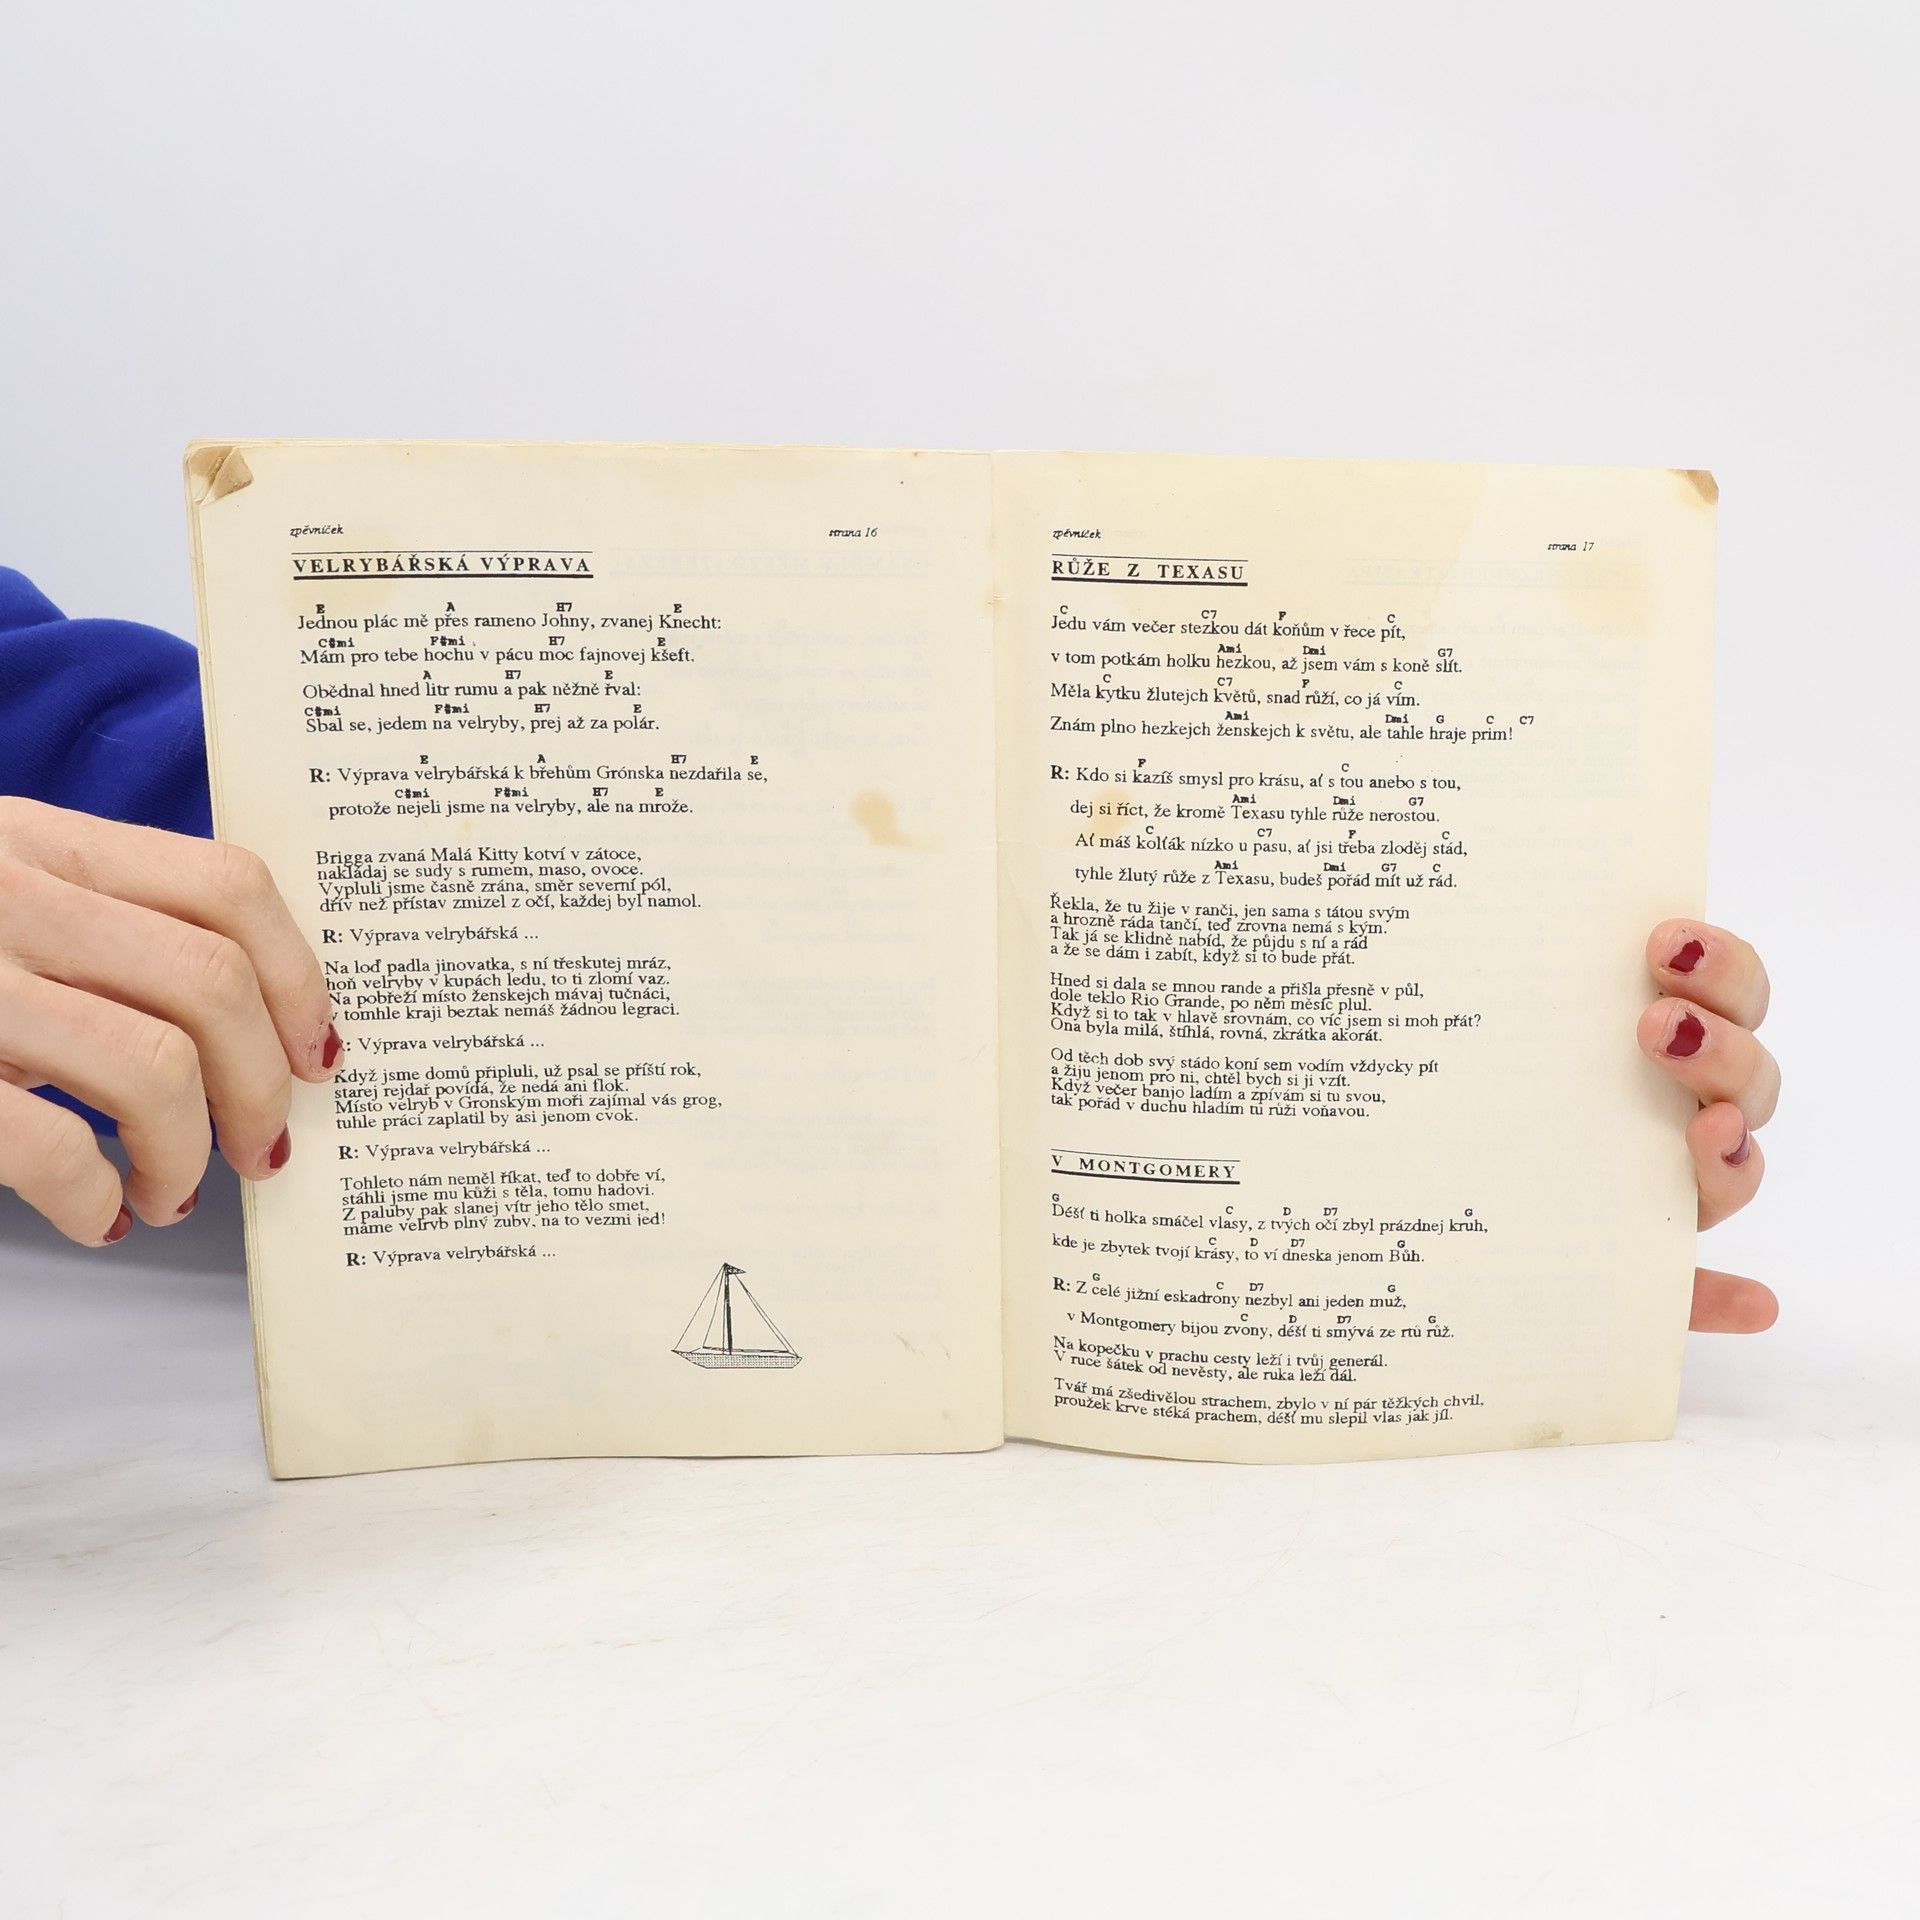 zpěvníček strana 16
VELRYBÁŘSKÁ VÝPRAVA
E A H7 E
Jednou plác mě přes rameno Johny, zvanej Knecht:
C#mi F#mi H7 E
Mám pro tebe hochu v pácu moc fajnovej kšeft.
A H7 E
Obědnal hned litr rumu a pak něžně řval:
C#mi F#mi H7 E
Sbal se, jedem na velryby, prej až za polár.
E A H7 E
R: Výprava velrybářská k břehům Grónska nezdařila se,
C#mi F#mi H7 E
protože nejeli jsme na velryby, ale na mrože.
Brigga zvaná Malá Kitty kotví v zátoce,
nakládaj se sudy s rumem, maso, ovoce.
Vypluli jsme časně zrána, směr severní pól,
dřív než přístav zmizel z očí, každej byl namol.
R: Výprava velrybářská ...
Na loď padla jinovatka, s ní třeskutej mráz,
hoň velryby v kupách ledu, to ti zlomí vaz.
Na pobřeží místo ženskejch mávaj tučnáci,
v tomhle kraji beztak nemáš žádnou legraci.
R: Výprava velrybářská ...
Když jsme domů připluli, už psal se příští rok,
starej rejdař povídá, že nedá ani flok.
Místo velryb v Gronským moři zajímal vás grog,
tuhle práci zaplatil by asi jenom cvok.
R: Výprava velrybářská ...
Tohleto nám neměl říkat, teď to dobře ví,
stáhli jsme mu kůži s těla, tomu hadovi.
Z paluby pak slanej vítr jeho tělo smet,
máme velryb plný zuby, na to vezmi jed!
R: Výprava velrybářská ...
zpěvníček strana 17
RŮŽE Z TEXASU
C C7 F C
Jedu vám večer stezkou dát koňům v řece pít,
Ami Dmi G7
v tom potkám holku hezkou, až jsem vám s koně slít.
C C7 F C
Měla kytku žlutejch květů, snad růží, co já vím.
Ami Dmi G C C7
Znám plno hezkejch ženskejch k světu, ale tahle hraje prim!
F C
R: Kdo si kazíš smysl pro krásu, ať s tou anebo s tou,
Ami Dmi G7
dej si říct, že kromě Texasu tyhle růže nerostou.
C C7 F C
Ať máš kolťák nízko u pasu, ať jsi třeba zloděj stád,
Ami Dmi G7 C
tyhle žlutý růže z Texasu, budeš pořád mít už rád.
Řekla, že tu žije v ranči, jen sama s tátou svým
a hrozně ráda tančí, teď zrovna nemá s kým.
Tak já se klidně nabíd, že půjdu s ní a rád
a že se dám i zabít, když si to bude přát.
Hned si dala se mnou rande a přišla přesně v půl,
dole teklo Rio Grande, po něm měsíc plul.
Když si to tak v hlavě srovnám, co víc jsem si moh přát?
Ona byla milá, štíhlá, rovná, zkrátka akorát.
Od těch dob svý stádo koní sem vodím vždycky pít
a žiju jenom pro ni, chtěl bych si ji vzít.
Když večer banjo ladím a zpívám si tu svou,
tak pořád v duchu hladím tu růži voňavou.
V MONTGOMERY
G C D D7 G
Déšť ti holka smáčel vlasy, z tvých očí zbyl prázdnej kruh,
C D D7 G
kde je zbytek tvojí krásy, to ví dneska jenom Bůh.
G C D7 G
R: Z celé jižní eskadrony nezbyl ani jeden muž,
C D D7 G
v Montgomery bijou zvony, déšť ti smývá ze rtů růž.
Na kopečku v prachu cesty leží i tvůj generál.
V ruce šátek od nevěsty, ale ruka leží dál.
Tvář má zšedivělou strachem, zbylo v ní pár těžkých chvil,
proužek krve stéká prachem, déšť mu slepil vlas jak jíl.